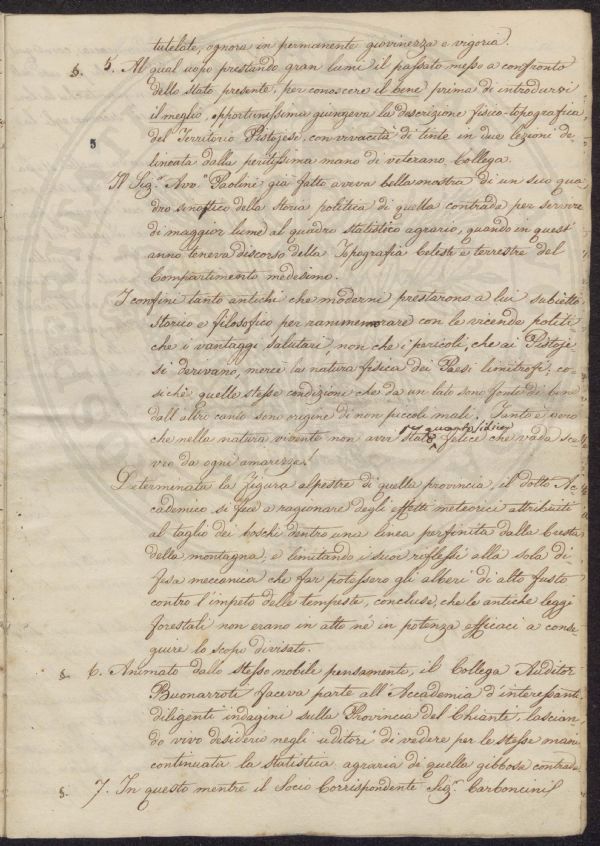 tutelate, ognora in permanente giovinezza e vigoria.
§. 5. Al qual uopo prestando gran lumi il passato messo a confronto
dello stato presente, per conoscere il bene prima di introdursi
il meglio, opportunissima giungeva la descrizione fisico-topografica
del Territorio Pistojese, con vivacità di tinte in due lezioni de
lineata dalla peritissima mano di veterano Collega.
Il Sigr. Avvo. Paolini già fatto aveva bella mostra di un suo qua
dro sinottico della storia politica di quella contrada per servire
di maggior lume al quadro statistico agrario, quando in quest'
anno teneva discorso della Topografia Celeste e terrestre del
Compartimento medesimo.
I confini tanto antichi che moderni prestarono a lui subietto
storico e filosofico per rammemorare con le vicende politi
che i vantaggi salutari, non che i pericoli, che ai Pistoje
si derivano, mercè la natura fisica dei Paesi limitrofi, co
sichè quelle stesse condizioni che da un lato sono fonte di bene
dall'altro canto sono origine di non piccoli mali. Tanto è vero
che nella natura vivente non avvi stato quantosisia felice che vada sce
vro da ogni amarezza!
Determinata la figura alpestre di quella provincia, il dotto Ac
cademico si fece a ragionare degli effetti meteorici attribuiti
al taglio dei boschi dentro una linea perfinita dalla Cresta
della montagna, e limitando i suoi riflessi alla sola di
fesa meccanica che far potessero gli alberi di alto fusto
contro l'impeto delle tempeste, concluse, che le antiche leggi
forestali non erano in atto nè in potenza efficaci a conse
guire lo scopo divisato.
§. 6. Animato dallo stesso nobile pensamento, il Collega Auditor
Buonarroti faceva parte all'Accademia d'interessanti
diligenti indagini sulla Provincia del Chianti, lascian
do vivo desiderio negli uditori di vedere per le stesse mani
continuata la statistica agraria di quella gibbosa contrada.
§. 7. In questo mentre il Socio Corrispondente Sigr. Carboncini